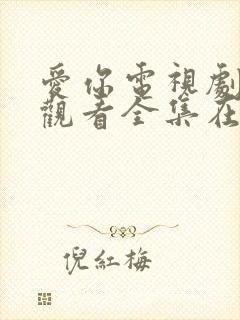 愛你電視劇
觀看全集在
倪紅梅